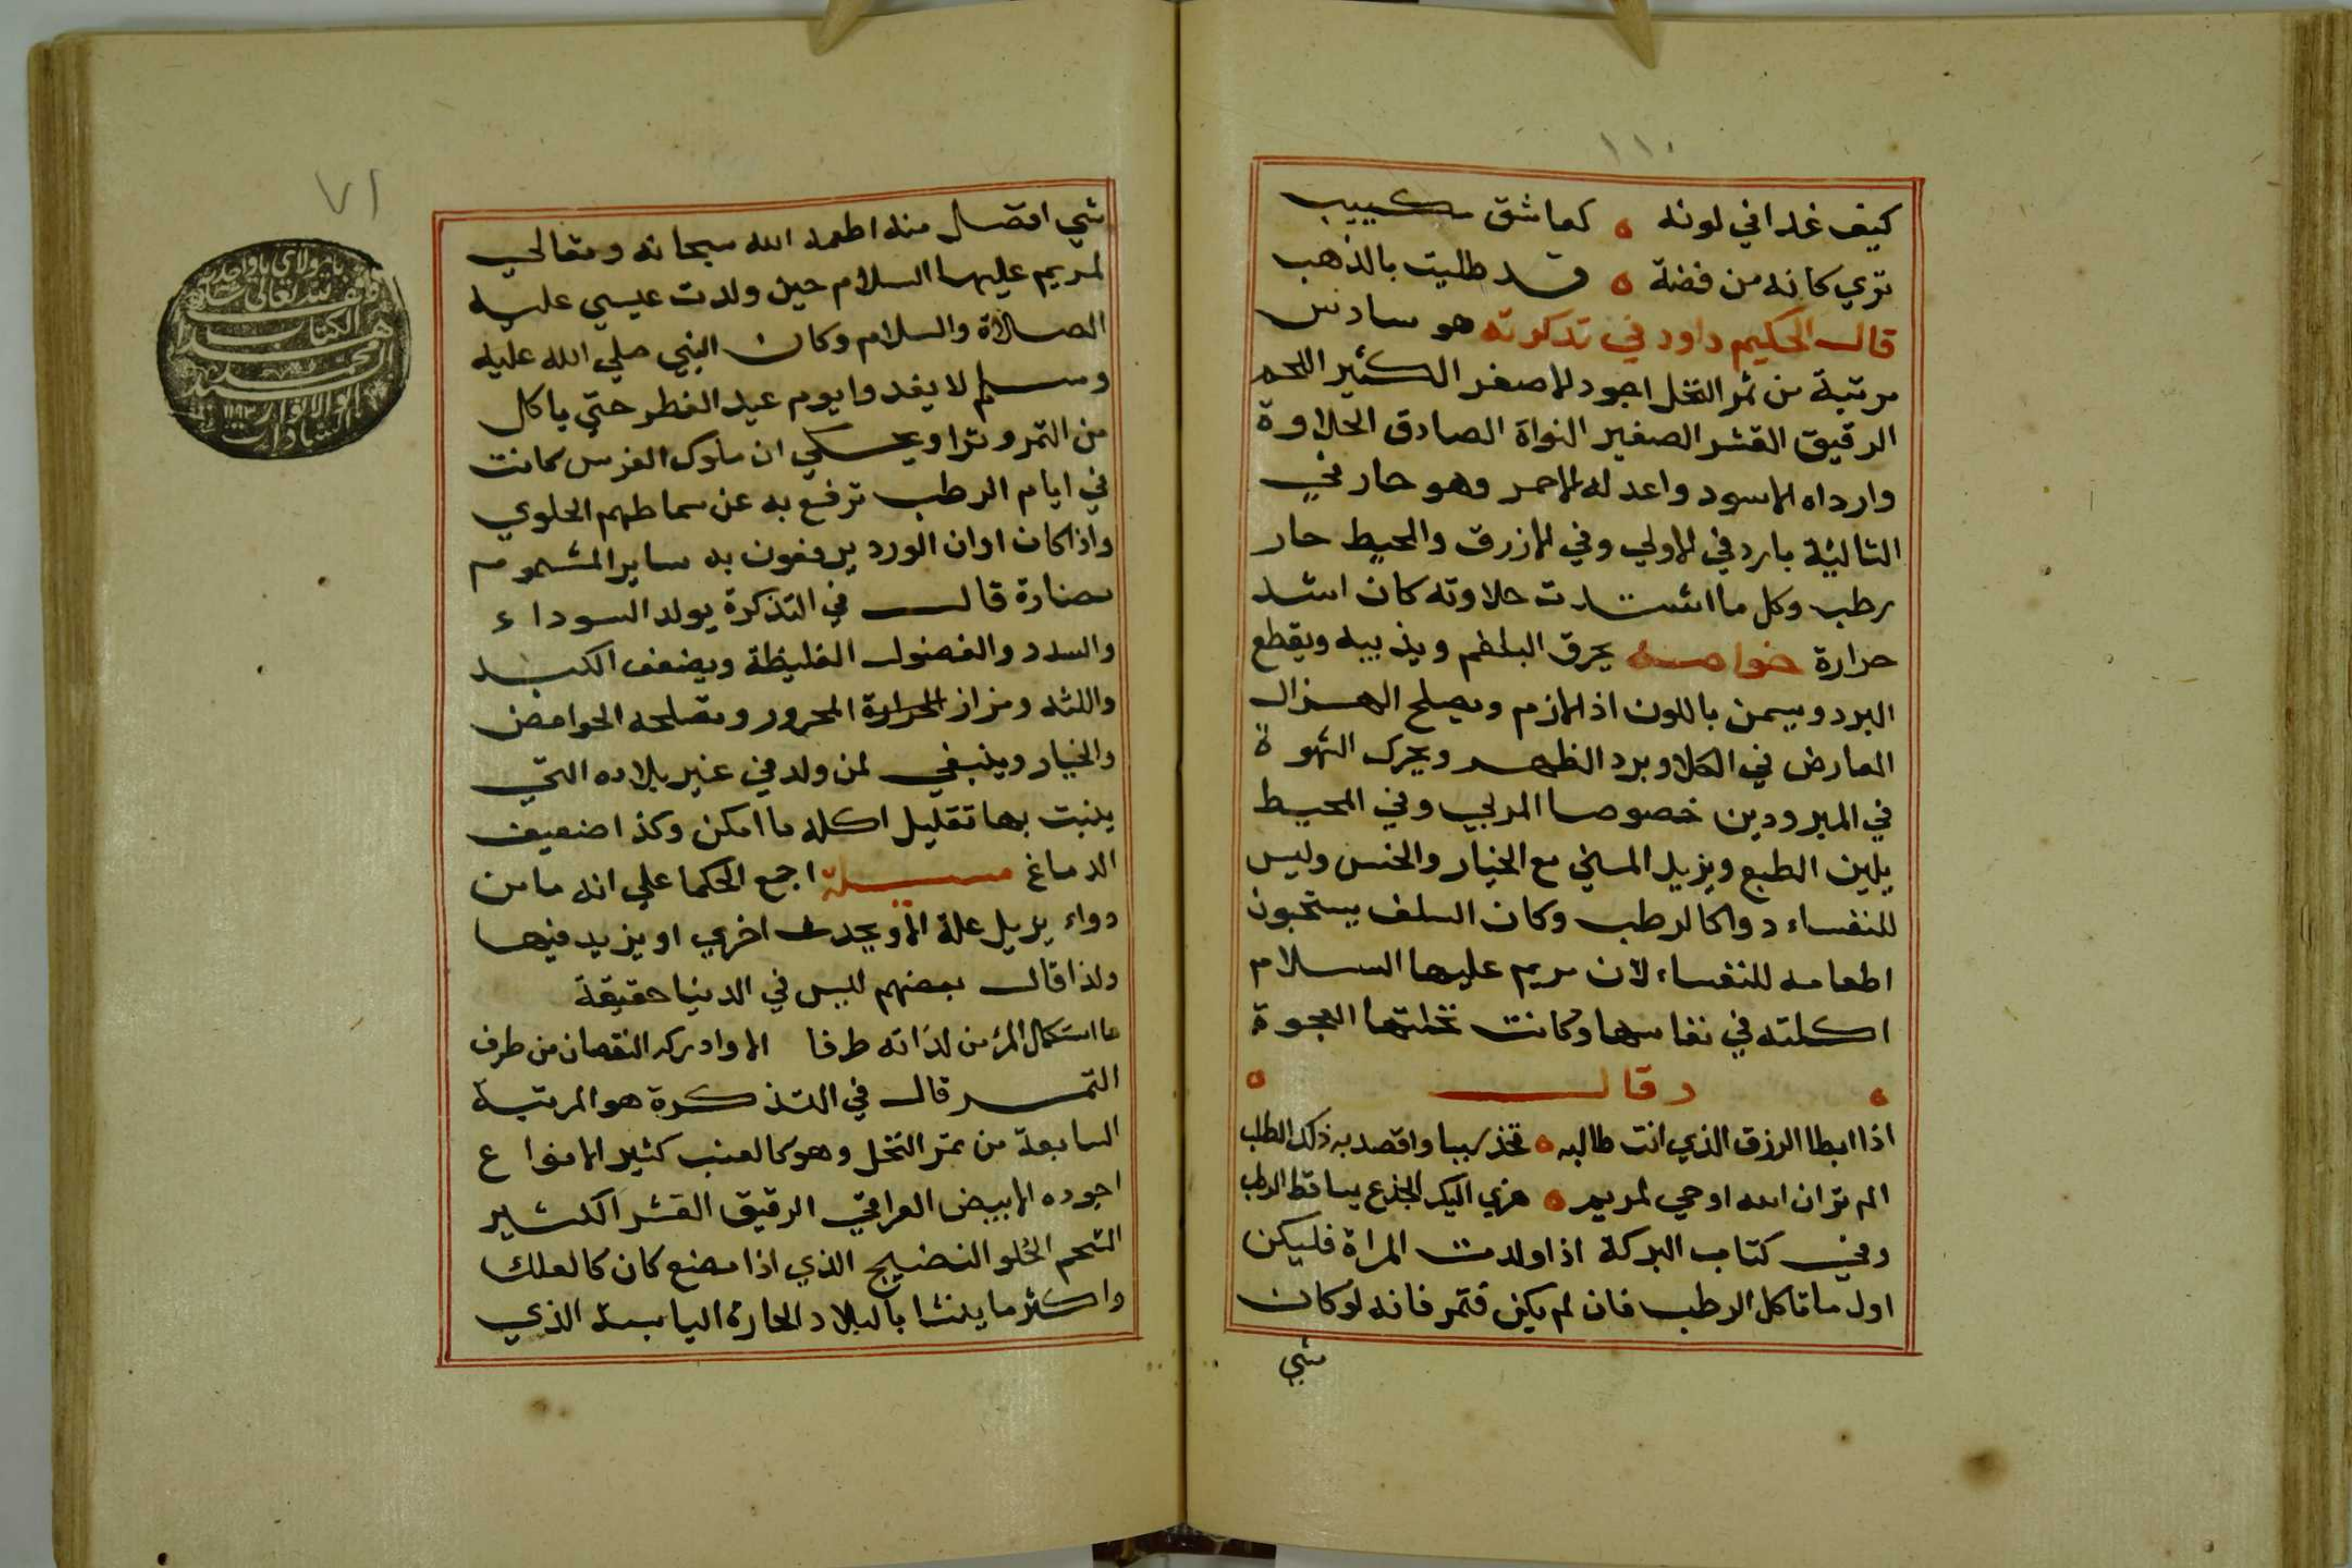 ١١٠
كيف غدا في لونه ه كعاشق كييب
تري كانه من فضة ه قد طليت بالذهب
قال الحكيم داود في تذكرته هو سادس
مرتبة من ثمر النخل اجود الاصفر الكثير اللحم
الرقيق القشر الصغير النواة الصادق الحلاوة
وارداه الاسود واعدله الاحمر وهو حار في
الثالثة بارد في الاولي وفي الازرق والمحيط حار
رطب وكل ما اشتدت حلاوته كان اشد
حرارة خواصه يحرق البلغم ويذيبه ويقطع
البرد ويسمن باللون اذ الازم ويصلح الهزال
العارض في الكلا وبرد الظهر ويحرك الشهوة
في المبرودين خصوصا المربي وفي المحيط
يلين الطبع ويزيل المسخ مع الخيار والخس وليس
للنفساء دوا كالرطب وكان السلف يستحبون
اطعامه للنفساء لان مريم عليها السلام
اكلته في نفاسها وكانت نخلتها العجوة
ه وقال ه
اذا ابطا الرزق الذي انت طالبه ه تخذ سببا واقصد به ذلك الطلب
الم تران الله اوحي لمريم ه هزي اليك الجذع يساقط الرطب
وفي كتاب البركة اذا ولدت المراة فليكن
اول ما تاكل الرطب فان لم يكن فتمر فانه لو كان
شي
٧١
شي افضل منه اطعمه الله سبحانه وتعالي
لمريم عليها السلام حين ولدت عيسي عليه
الصلاة والسلام وكان النبي صلي الله عليه
وسلم لا يغدوا يوم عيد الفطر حتي ياكل
من التمر وترا ويحكي ان ملوك الفرس كانت
في ايام الرطب ترفع به عن سماطهم الحلوي
واذا كان اوان الورد يرفعون به ساير المشموم
مضارة قال في التذكرة يولد السوداء
والسدد والفضول الغليظة ويضعف الكبد
واللثه ومزاز الحرارة المحرور وتصلحه الحوامض
والخيار وينبغي لمن ولد في غير بلاده التي
ينبت بها تقليل اكله ما امكن وكذا ضعيف
الدماغ مسيلة اجمع الحكما علي انه ما من
دواء يزيل علة الا ويحدث اخري او يزيد فيها
ولذا قال بعضهم ليس في الدنيا حقيقة
ما استكمال المرء من لذاته طرفا الا وادركه النقصان من طرف
التمر قال في التذكرة هو المرتبة
السابعة من تمر النخل وهو كالعنب كثير الانواع
اجوده الابيض العراقي الرقيق القشر الكثير
الشحم الحلو النضيج الذي اذا مضغ كان كالعلك
واكثر ما ينشا بالبلاد الحارة اليابسة الذي